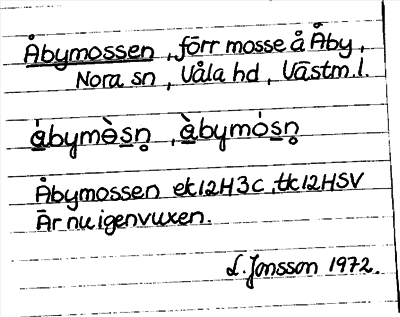 Åbymossen, förr mosse å Åby,
Nora sn, Våla hd, Västm.l.
å̀bymòsn̥, å̀bymósn̥
Åbymossen ek12H3c, tk12HSV
Är nu igenvuxen.
L. Jonsson 1972.